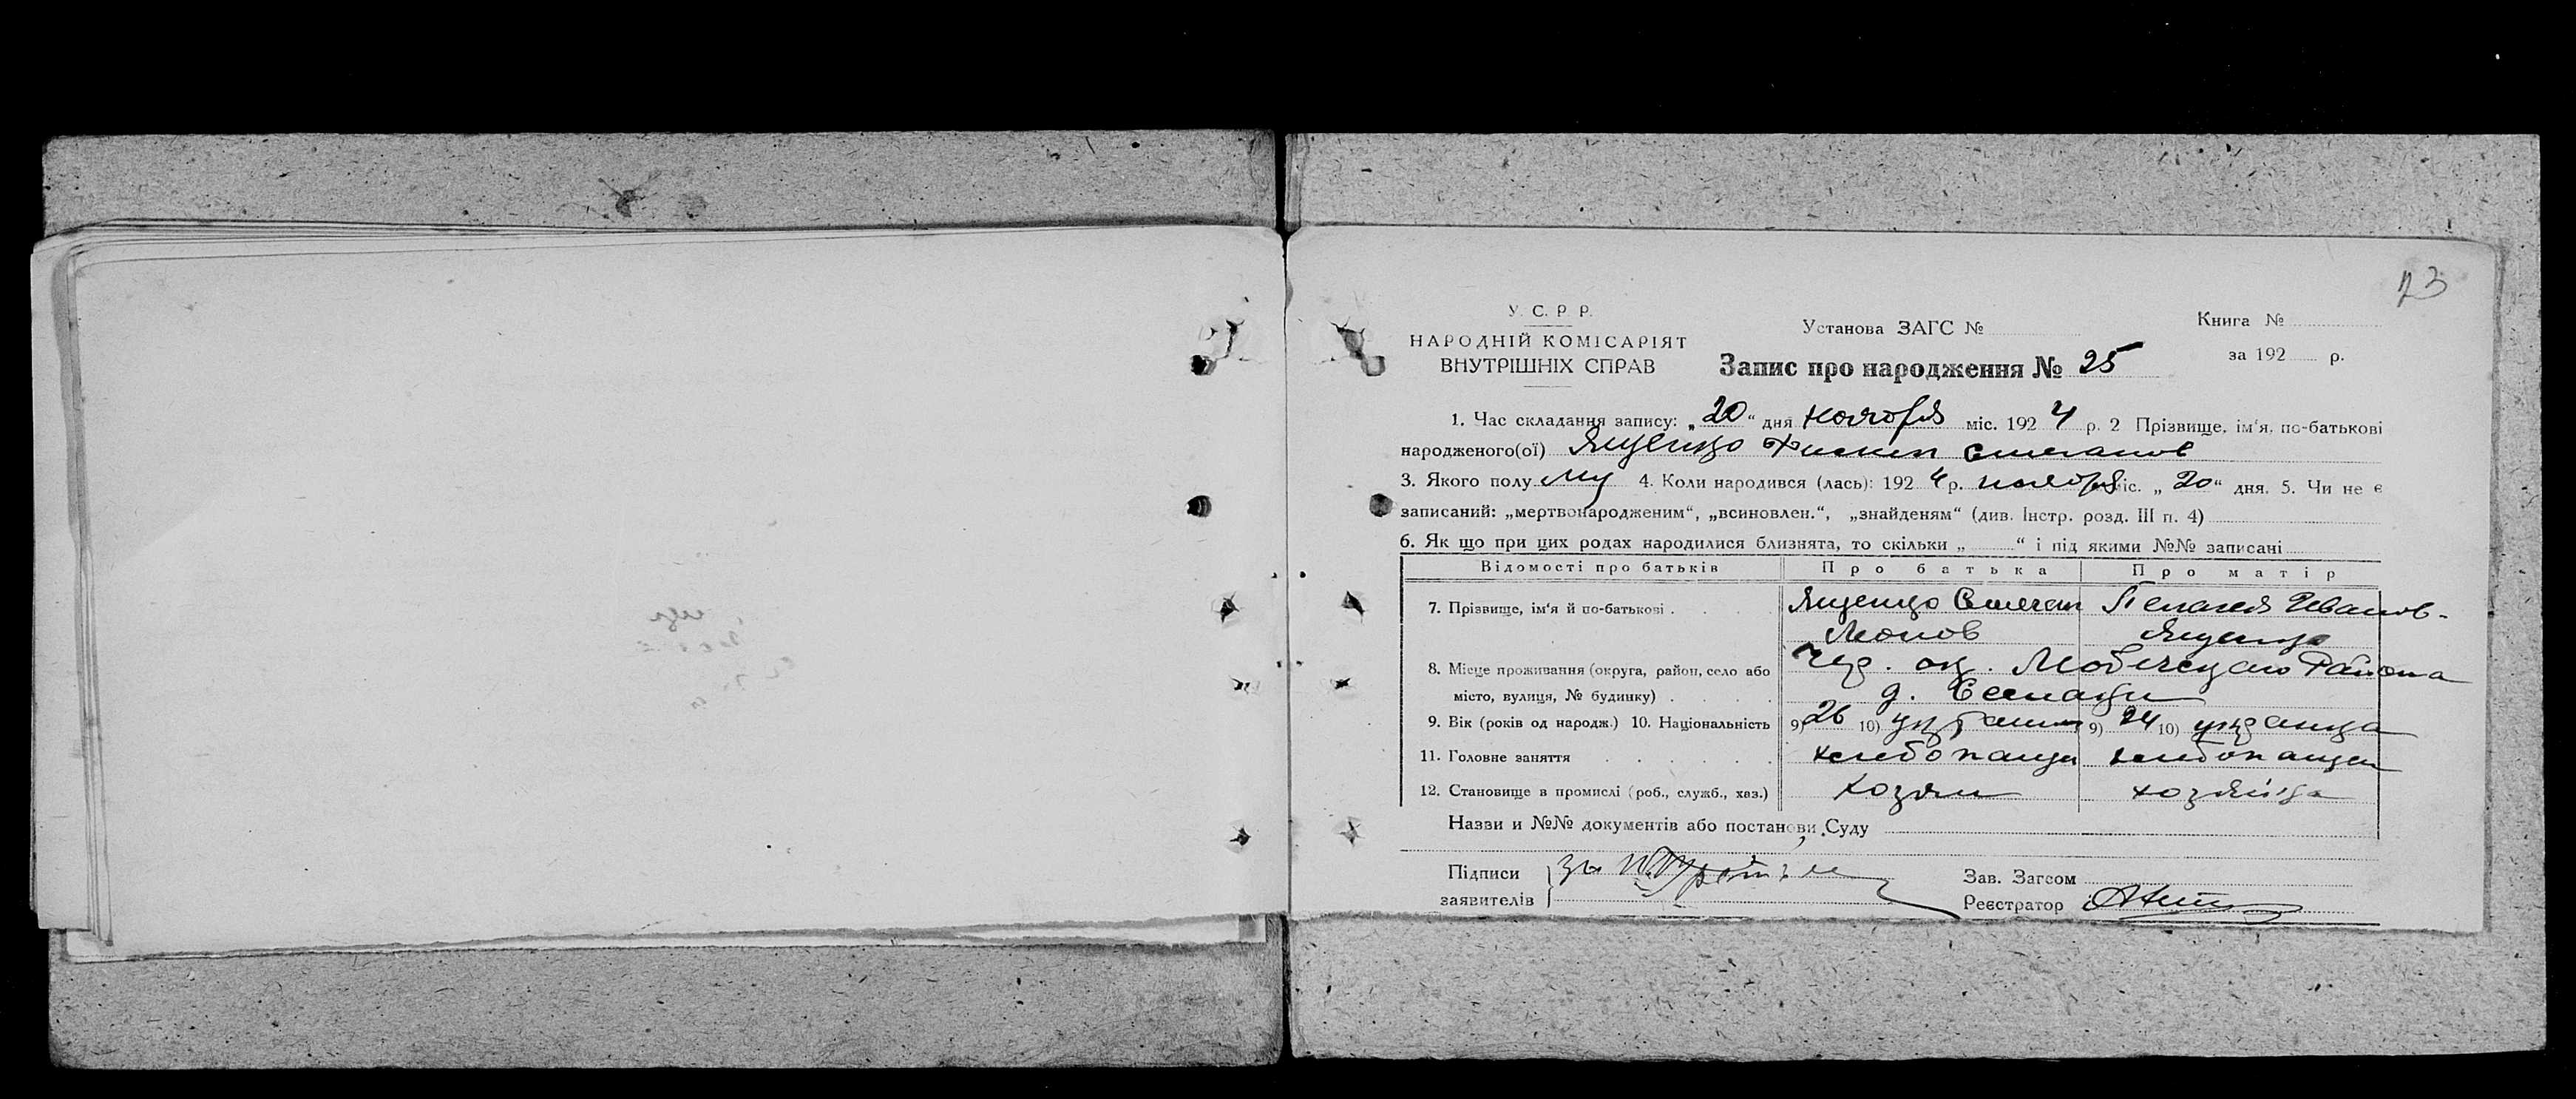 23
У. С. Р. Р.
НАРОДНІЙ КОМІСАРІЯТ
ВНУТРІШНІХ СПРАВ
Установа ЗАГС №
Книга №
за 192 р.
Запис про народження № 25
1. Час складання запису: „20“ дня ноября міс. 1924 р. 2 Прізвище, ім'я, по-батькові
народженого(ої) Ященко Филип Степанов
3. Якого полу му 4. Коли народився (лась): 1924 р. ноября міс. „20“ дня. 5. Чи не є
записаний: „мертвонародженим“, „всиновлен.“, „знайденям“ (див. Інстр. розд. III п. 4)
6. Як що при цих родах народилися близнята, то скільки „ “ і під якими №№ записані
Відомості про батьків Про батька Про матір
7. Прізвище, ім'я й по-батькові Ященко Степан Пелагея Иванов-
Ященко
8. Місце проживання (округа, район, село або Чер. ок. Любечского Района
місто, вулиця, № будинку) д.
9. Вік (років од народж.) 10. Національність 9) 26 10) 9) 24 10) украинка
11. Головне заняття хлебопашец хлебопашец
12. Становище в промислі (роб., служб., хаз.) хозяин хозяйка
Назви и №№ документів або постанови Суду
Підписи
заявителів
Зав. Загсом
Реєстратор